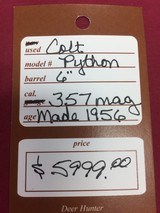 used Colt
model # Python
barrel 6"
cal. .357 mag
age Made 1956
price
$5999.00
Deer Hunter